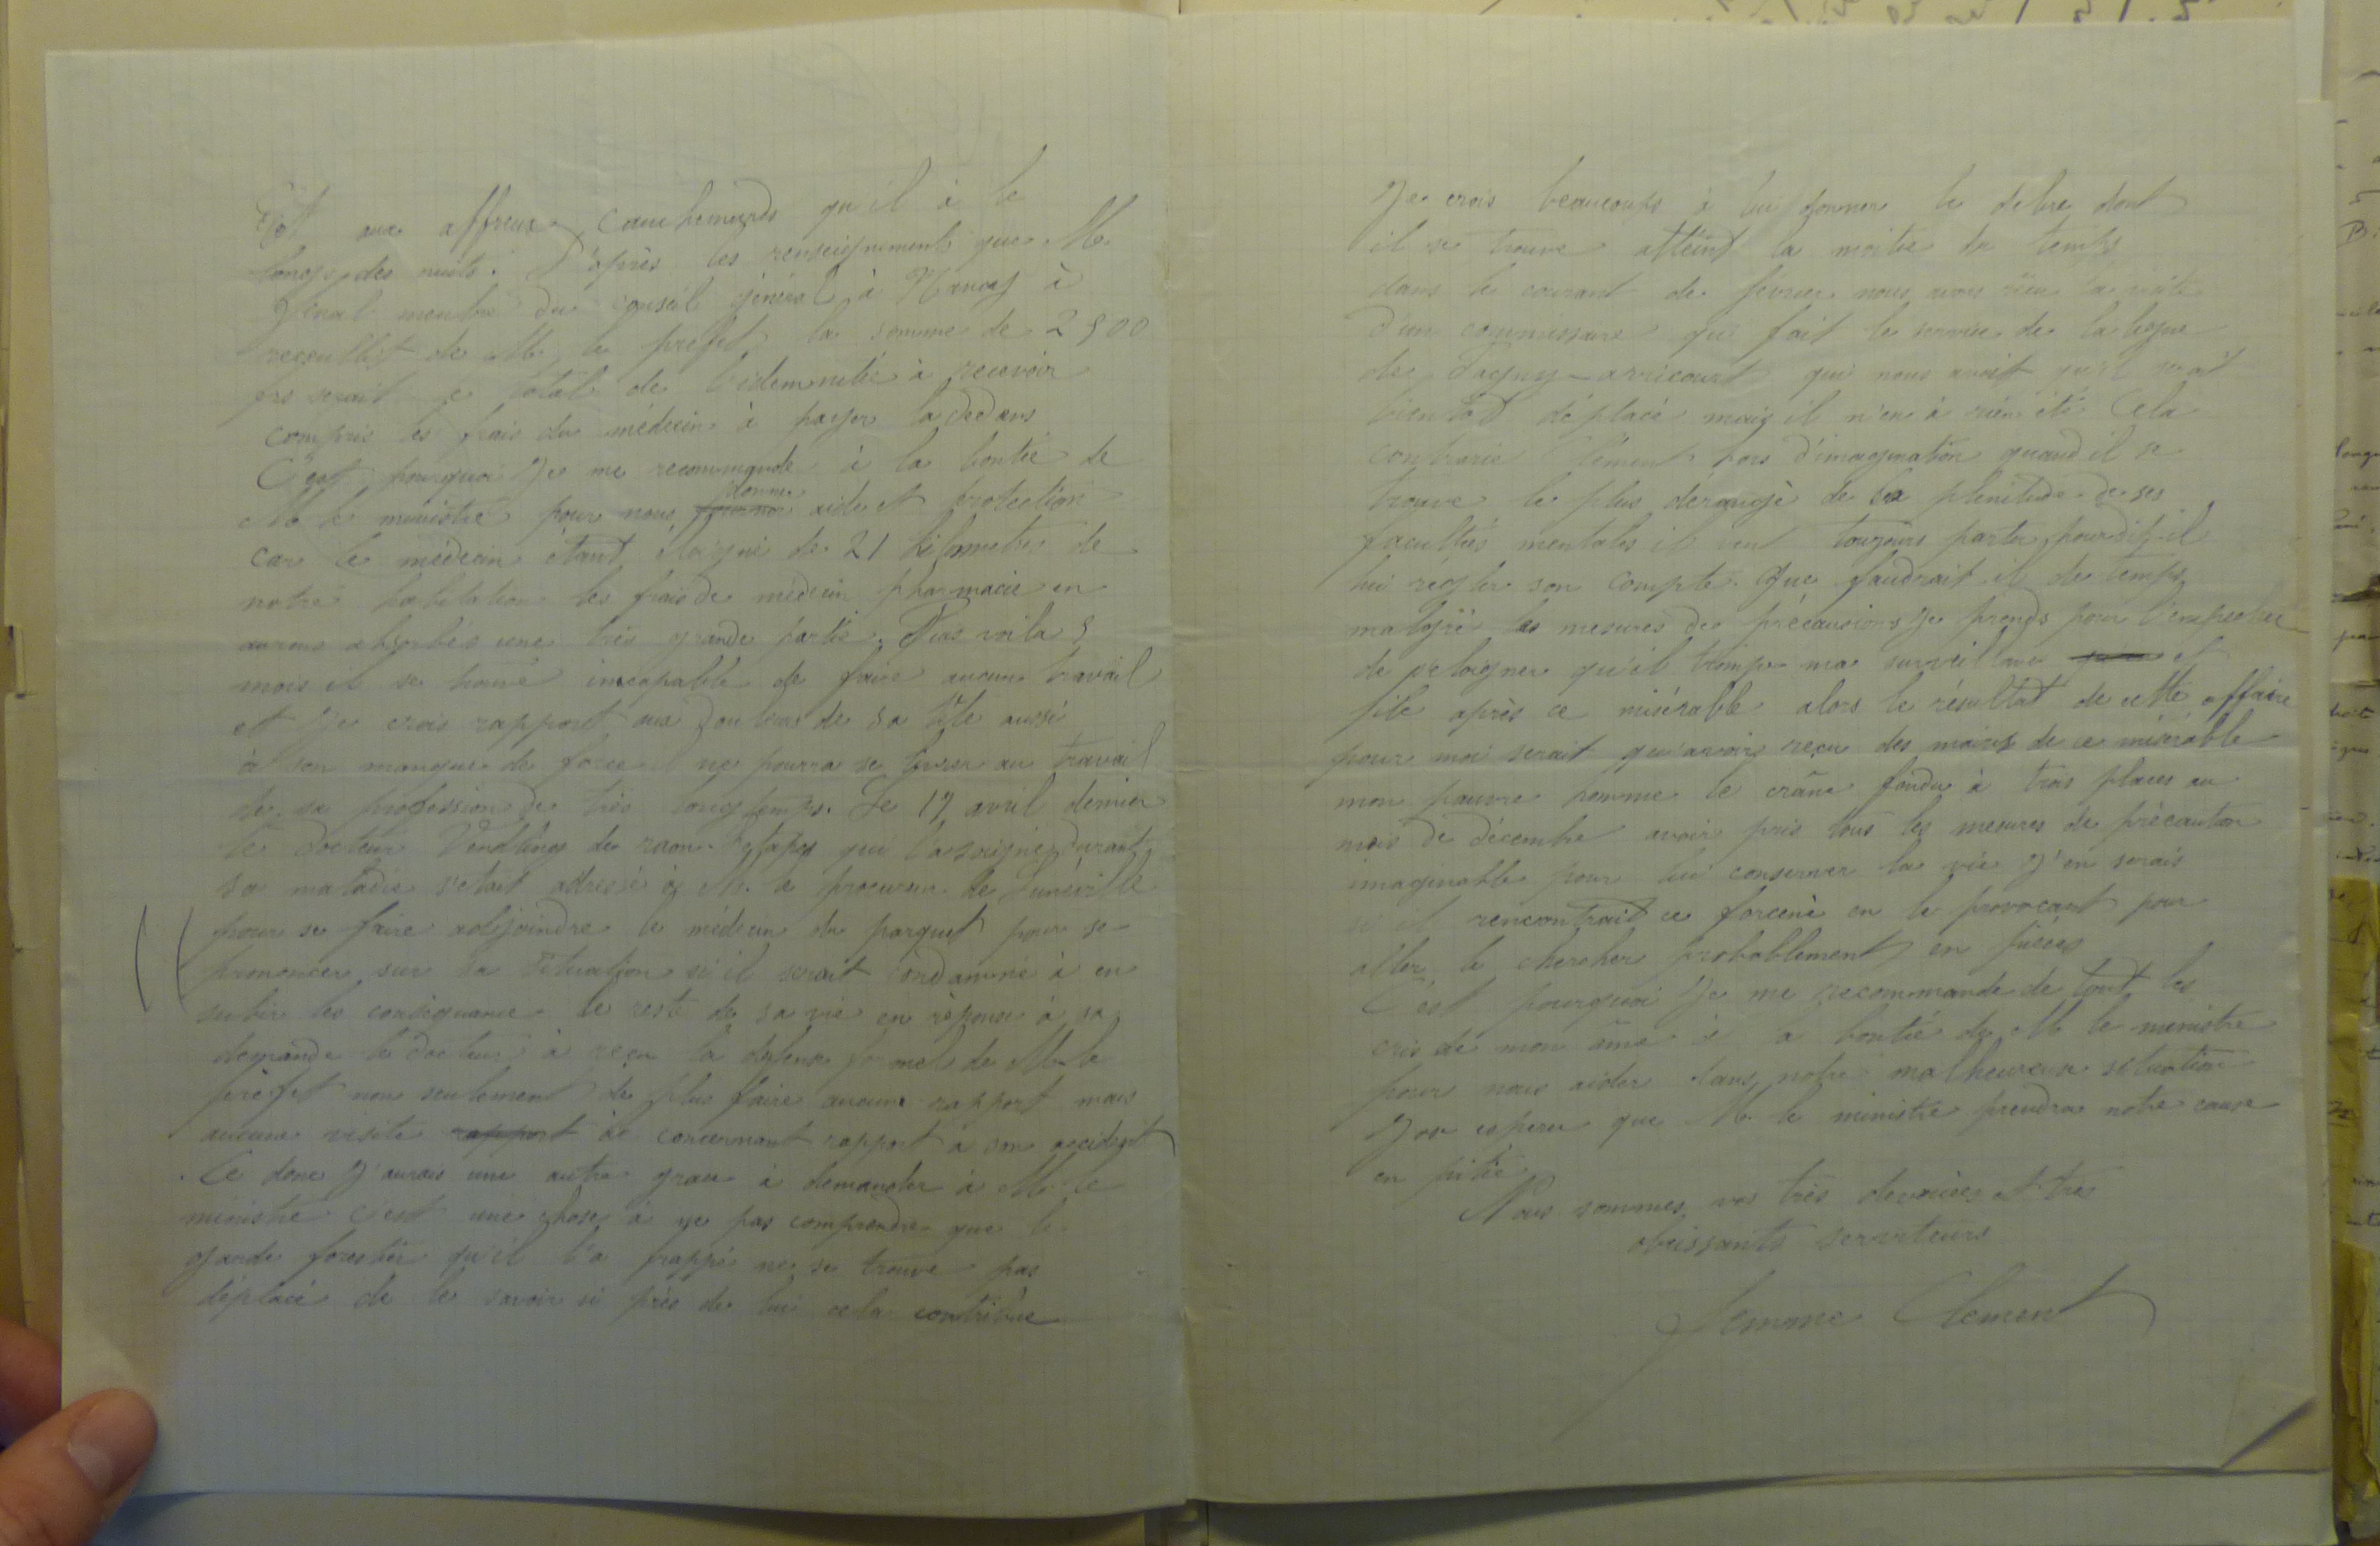 Et aux affreux cauchemards qu'il à le
long des nuits. D'après les renseignements que Mr
Génal membre du conseil général à Nancy à
recueillit de Mr le prefet la somme de 2500
frs serait le total de l'idemnitée à recevoir
compris les frais du médecin à payer la dedans
C'est pourquoi Je me recommande à la bontée de
Mr le ministre pour nous donner aide et protection
car le médecin étant éloigné de 21 kilometres de
notre habitation les frais de médecin pharmacie en
aurons absorbés une très grande partie. Puis voila 5
mois il se trouve incapable de faire aucun travail
et Je crois rapport aux douleurs de sa tête aussi
à son manque de force il ne pourra se livrer au travail
de sa profession de très longtemps. Le 17 avril dernier
le docteur Vendling de raon-l'etapes qui l'a soigné durant
sa maladie s'etait adressé à Mr le procureur de Lunéville
pour se faire adjoindre le médecin du parquet pour se
prononcer sur sa situation si il serait condamné à en
subir les conséquance le reste de sa vie en réponse à sa
demande le docteur à reçu la défense formel de Mr le
préfet non seulement de plus faire aucune rapport mais
aucune visite rapport àe concernant rapport à son accident
Ce donc J'aurais une autre grace à demander à Mr le
ministre c'est une chose à ne pas comprendre que le
garde forestier qu'il l'a frappé ne se trouve pas
déplacé de le savoir si près de lui cela contribue
Je crois beaucoups à lui donner le delire dont
il se trouve atteint la moitie du temps
dans le courant de février nous avons eu la visite
d'un commissaire qui fait le service de la ligne
de Pagny-avricourt qui nous avait qu'il serait
bientôt déplacé mais il n'en à rien été Cela
contrarie Clément hors d'imagination quand il se
trouve le plus dérangé de la plenitude de ses
facultés mentales il veut toujours partir pour dit-il
lui régler son compte. Que faudrait il de temps
malgré les mesures de précausions Je prends pour l'empecher
de s'eloigner qu'il trompe ma surveillance et
file après ce misérable alors le résultat de cette affaire
pour moi serait qu'avoir reçu des mains de ce misérable
mon pauvre homme le crâne fendu à trois places au
mois de décembre avoir pris tous les mesures de précaution
imaginable pour lui conserver la vie J'en serais
si il rencontrait ce forcené en le provocant pour
aller le chercher probablement en pièces
C'est pourquoi Je me recommande de tout les
cris de mon âme à la bontée de Mr le ministre
pour nous aider dans notre malheureuse situation
J'ose esperer que Mr le ministre prendra notre cause
en pitiée
Nous sommes vos très devouées et très
obeissants serviteurs
Femme Clement